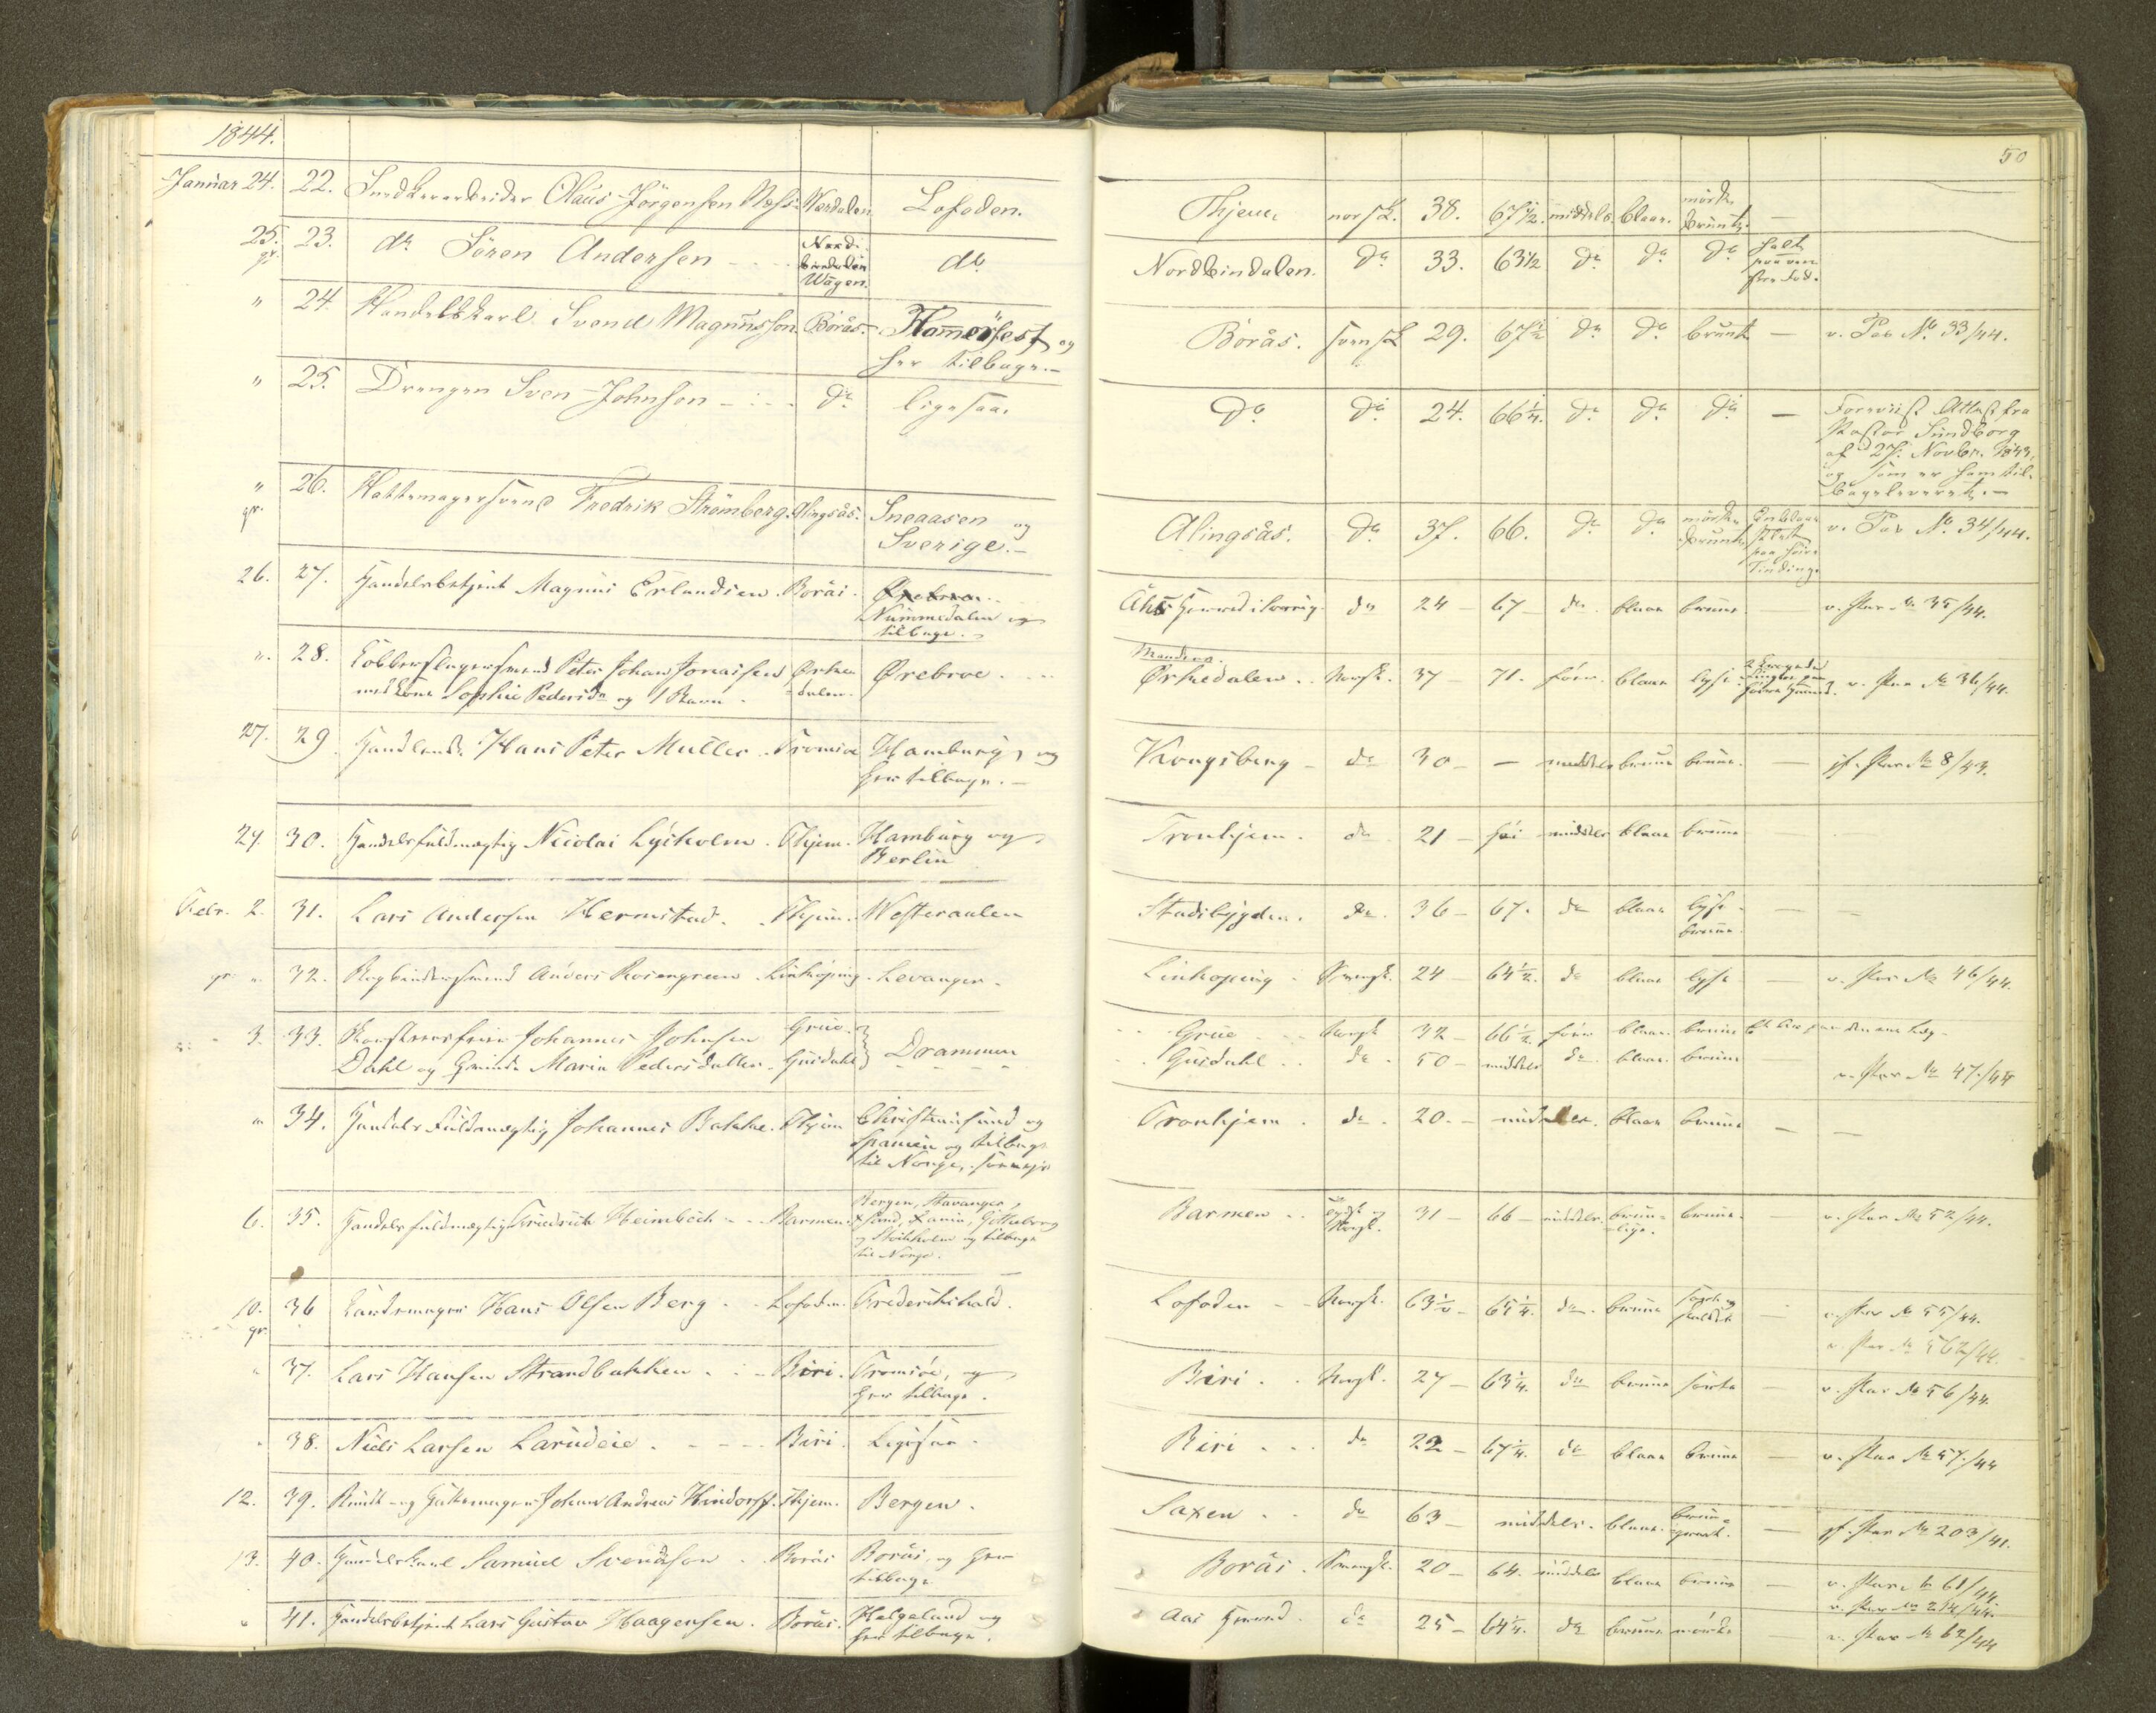 1844.
50
Januar 24. 22. Snedkerarbeider Olaus Jörgensen Næss Værdalen Lofoden. Thjem norsk. 38. 67½. middels. blaae. mörke brunt. —
25. gr. 23. do Sören Andersen Nord- bindalen Waagen. do Nordbindalen. do 33. 63½ do do do halt paa ven- stre Fod.
" 24. Handelskarl Svend Magnusson Borås. Hamerfest og her tilbage. Borås. svensk 29. 67½ do do brunt — v. Pas No 33/44.
" 25. Drengen Sven Johnson do ligesaa. do do 24. 66¼. do do do — Foreviist Attest fra
Pastor Sundborg
af 27. Novbr. 1843,
og som er ham til-
bageleveret.
" gr. 26. Hattemagersvend Fredrik Strömberg Alingsås. Sneaasen og Sverige. Alingsås. do 37. 66. do do mörke brunt paa höire Tinding. v. Pas No 34/44.
26. 27. Handelsbetjent Magnus Erlandsen Borås. Ørebroe Nummedalen og tilbage. Åhs Herred i Sverrig. do 24 67 do blaae brune v. Pas No 35/44.
". 28. Kobberslagersvend Peter Johan Jonassen Ørke-
med Kone Sophie Pedersdr og 1 Barn. dalen. Ørebroe. Manden. Ørkedalen. Norsk. 37 71. för. blaae lyse v. Pas No 36/44.
27. 29. Handlende Hans Peter Muller Tromsøe Hamburg, og her tilbage. Kongsberg do 30 — middels brune brune. — jf. Pas No 8/43.
27. 30. Handelsfuldmægtig Nicolai Lysholm. Thjem. Hamburg og Berlin Tronhjem. do 21 höi middels blaae brune
Febr. 2. 31. Lars Andersen Hermstad. Thjem. Westeraalen Stadsbygden. do 36 67. do blaae lyse brune. — —
gr. " 32. Bogbindersvend Anders Rosengreen Linköping. Levanger. Linkoping Svensk. 24 64½. do blaae lyse — v. Pas No 46/44.
3. 33. Johannes Johnsen Grue
Dahl og Maria Pedersdatter. Gusdahl Drammen Grue Norsk 32 66½. för blaae. brune
Gusdahl do 50 middels do blaae. brune v. Pas No 47/44
" 34. Handels Fuldmægtig Johannes Bakke. Thjem Christiansund og
Spanien og tilbage
til Norge, Tronhjem. do 20. middels. blaae brune — —
6. 35. Handelsfuldmægtig Friedrich Heimbech Barmen. Bergen, Stavanger,
Götheborg
og Stockholm og tilbage
til Norge. Barmen tydsk og Norsk. 31 66 middels. brun- lige. brune. v. Pas No 52/44.
10. gr. 36 Hans Olsen Berg Lofoden. Frederikshald. Lofoden Norsk. 63½ 65¼. do. brune — v. Pas No 55/44.
v. Pas No 562/44.
" 37. Lars Hansen Strandbakken Biri. Tromsøe, og her tilbage. Biri Norsk. 27 63¼. do brune sorte — v. Pas No 56/44.
" 38. Niels Larsen Larudeie Biri. Ligesaa. Biri do 22 67¼. do blaae brune — v. Pas No 57/44
12. 39. Johan Andreas Hindorff. Thjem. Bergen. Saxen do 63 middels. blaae. — jf. Pas No 203/41.
13. 40. Handelskarl Samuel Svendson Borås Borås, og her tilbage Borås Svensk. 20 64. middels blaae brune — v. Pas No 61/44
v. Pas No 214/44.
" 41. Handelsbetjent Lars Gustav Haagensen. Borås. Helgeland og her tilbage. Aas Herred. do 25 64¼. do brune mörke — v. Pas No 62/44